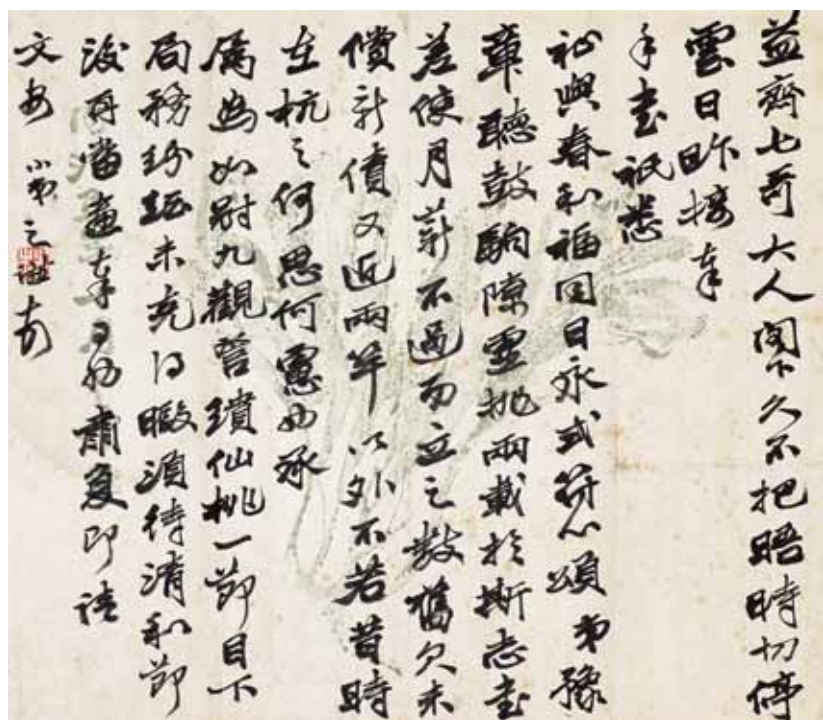 益齊七哥大人閣下久不把晤時切停
雲日昨接奉
手書祇悉
祉與春和福同日永式符心頌弟豫
章聽鼓駒隙虛拋兩載於斯志書
差使月薪不過而立之數舊欠未
償新債又近兩竿以外不若昔時
在杭之何思何慮也承
屬為如尉九觀察瓚仙桃一節目下
局務紛紜未克得暇須待清和節
後再當畫奉耳手肅復即請
文安 小弟之謙頓